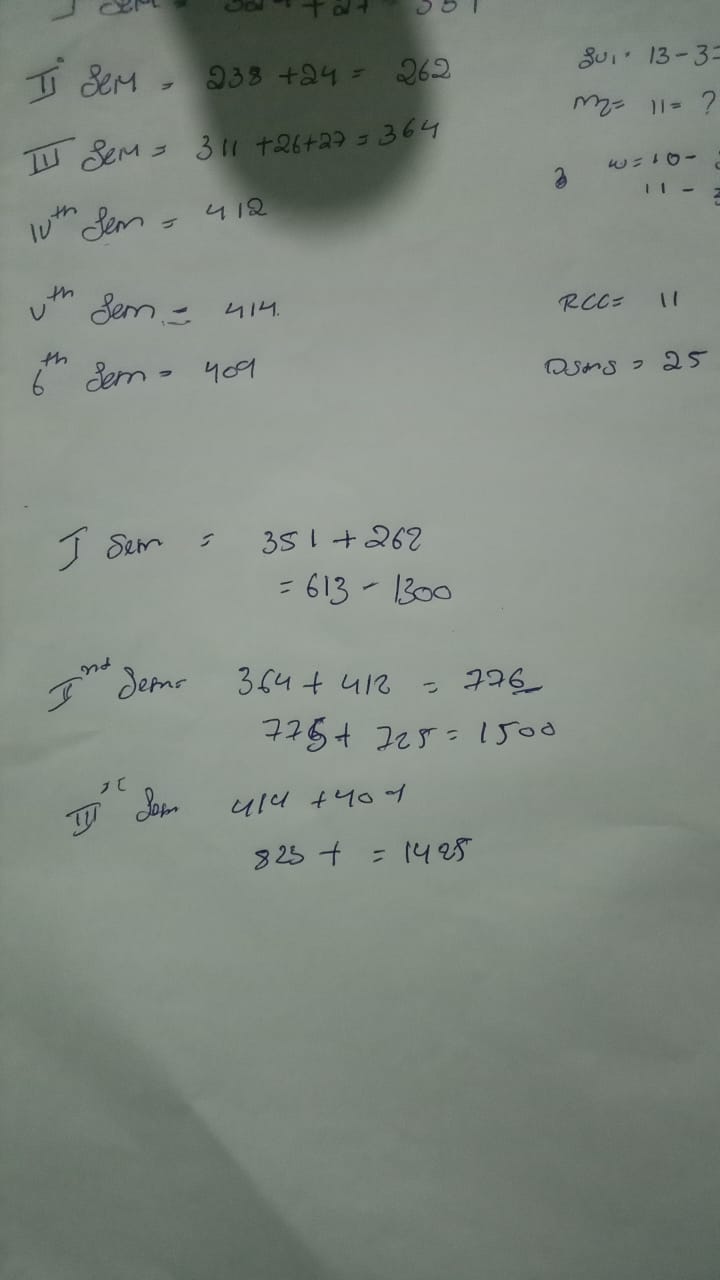 I Sem = 324 + 27 = 351
II Sem = 238 + 24 = 262
III Sem = 311 + 26 + 27 = 364
IVth Sem = 412
Vth Sem = 414
6th Sem = 409
13 - 3 =
11 = ?
w = 10 -
11 -
RCC = 11
= 25
I Sem = 351 + 262
= 613 - 1300
IInd Sem = 364 + 412 = 776
775 + 725 = 1500
III Sem 414 + 409
823 + = 1425